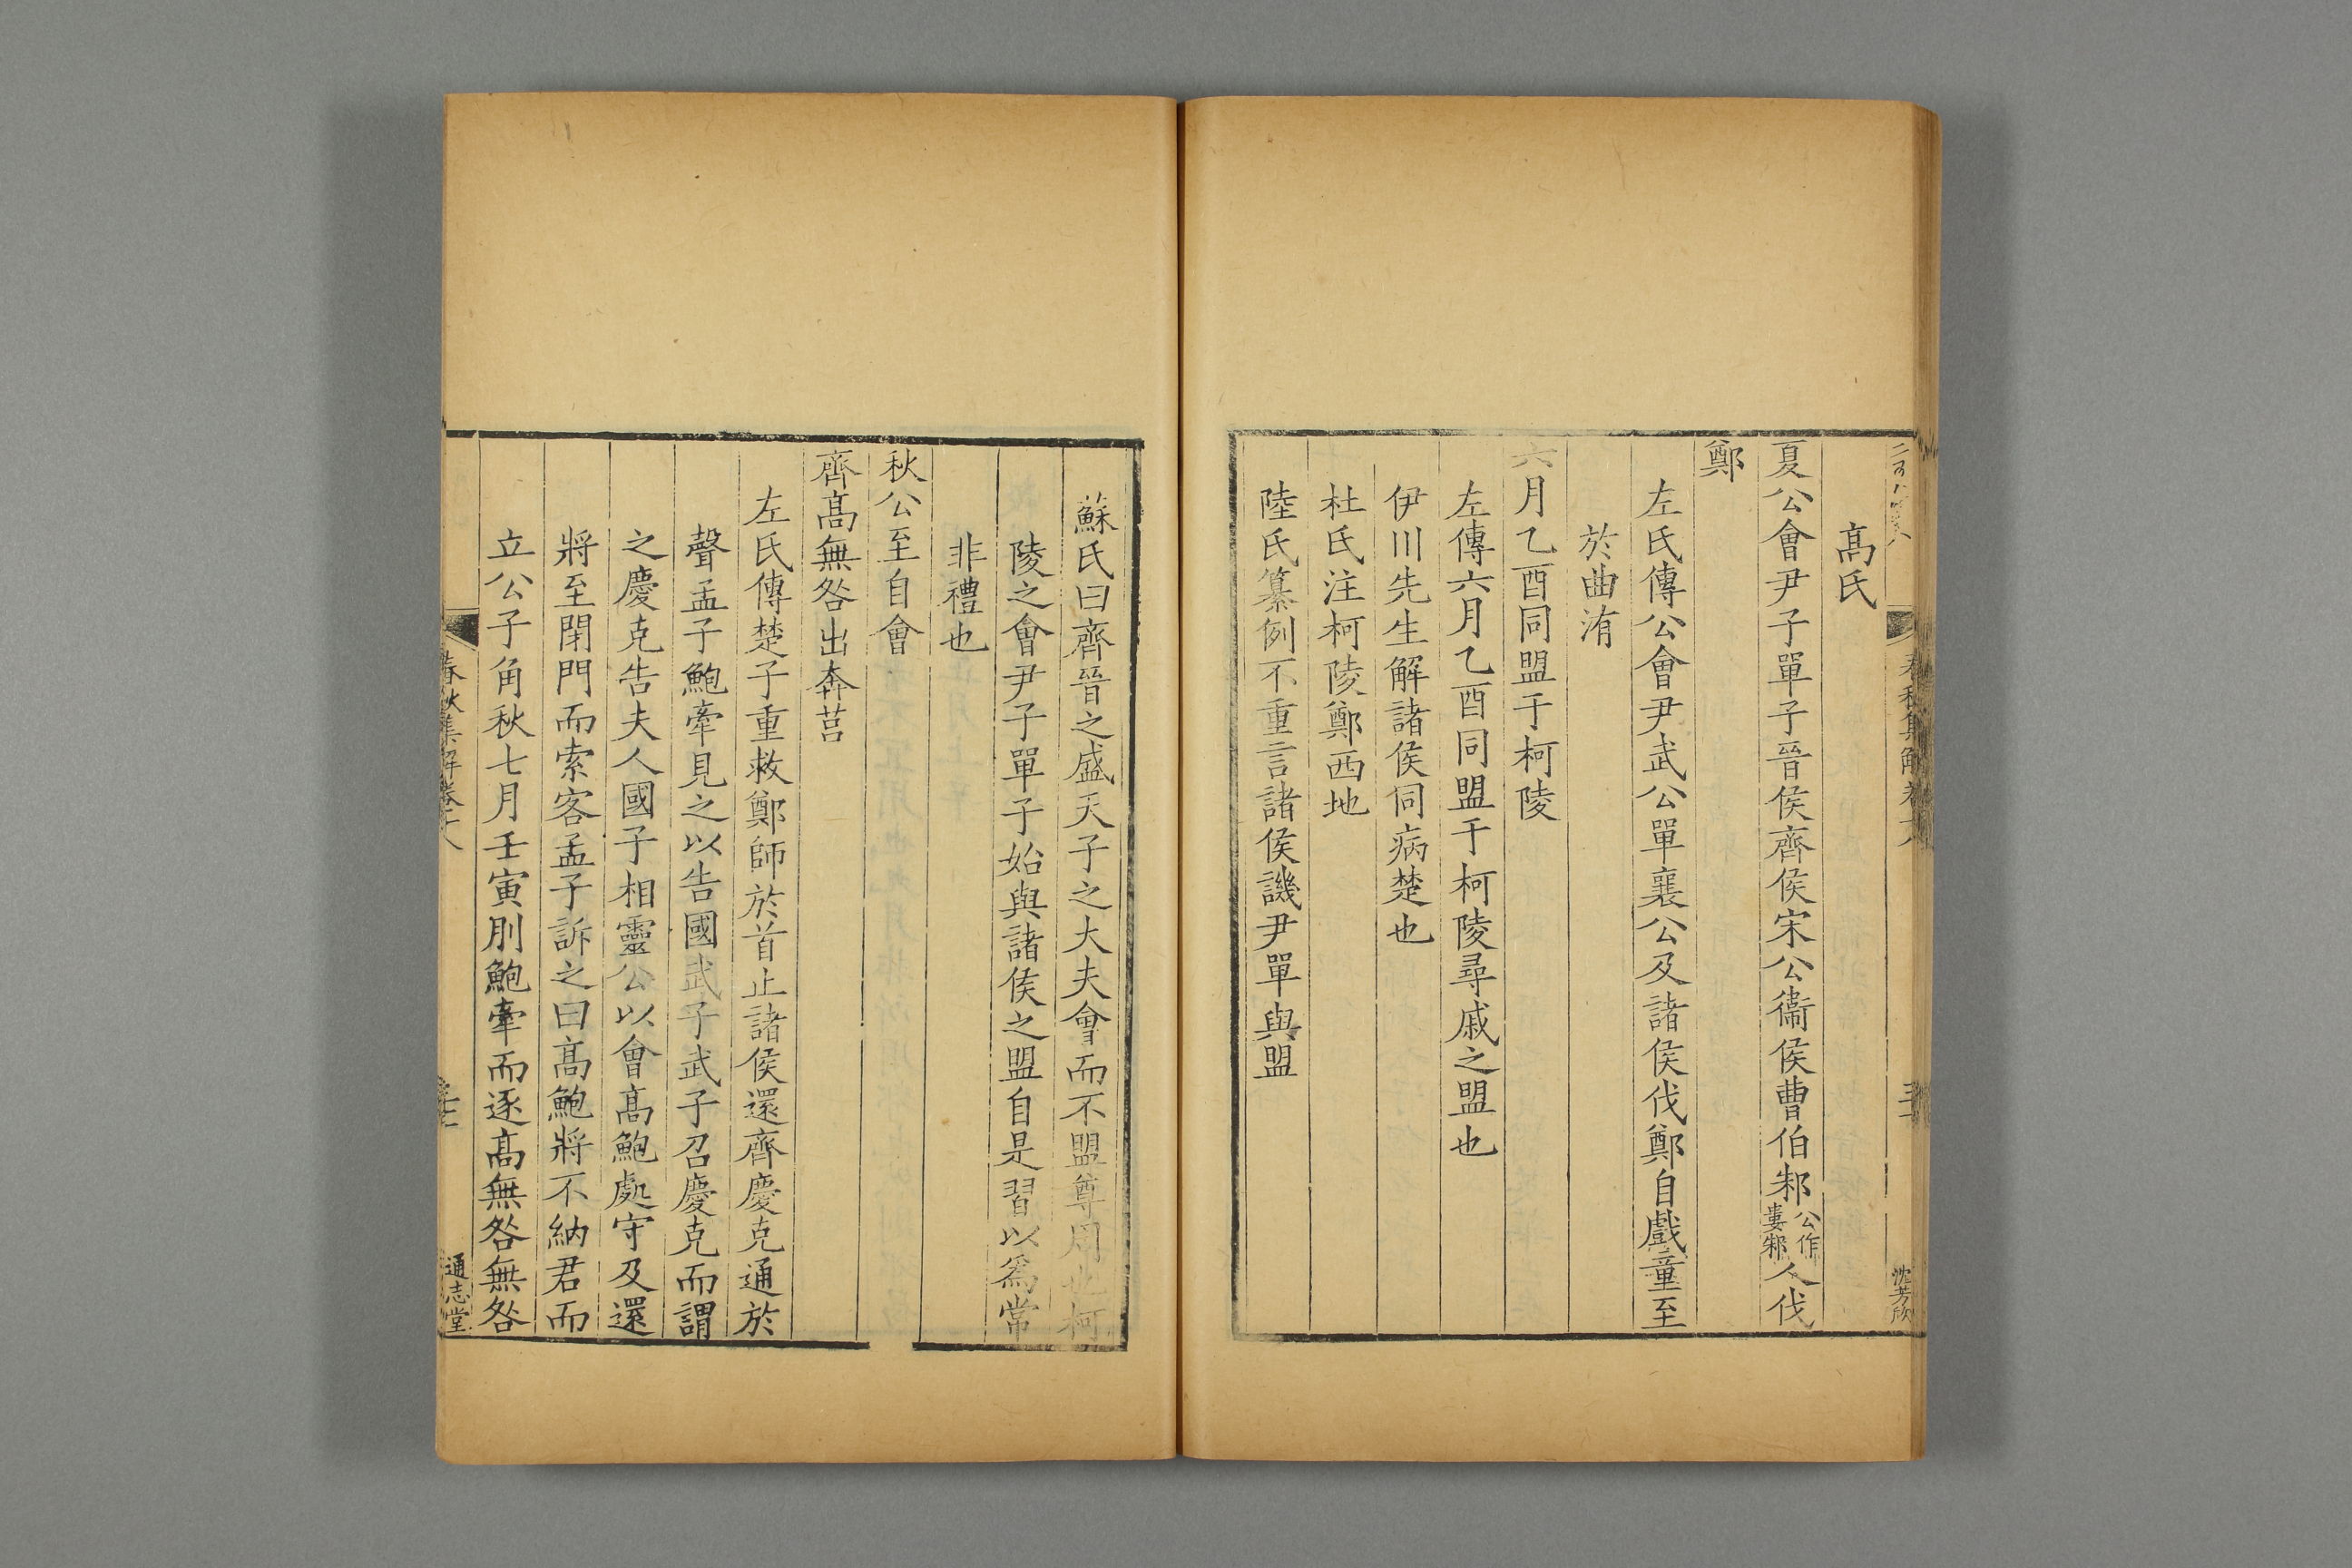 高氏
夏公會尹子單子晉侯齊侯宋公衞侯曹伯邾公作婁邾人伐
鄭
左氏傳公會尹武公單襄公及諸侯伐鄭自戲童至
於曲洧
六月乙酉同盟于柯陵
左傳六月乙酉同盟于柯陵尋戚之盟也
伊川先生解諸侯同病楚也
杜氏注柯陵鄭西地
陸氏纂例不重言諸侯譏尹單與盟
蘇氏曰齊晉之盛天子之大夫會而不盟尊周也柯
陵之會尹子單子始與諸侯之盟自是習以爲常
非禮也
秋公至自會
齊高無咎出奔莒
左氏傳楚子重救鄭師於首止諸侯還齊慶克通於
聲孟子鮑牽見之以告國武子武子召慶克而謂
之慶克告夫人國子相靈公以會高鮑處守及還
將至閉門而索客孟子訴之曰高鮑將不納君而
立公子角秋七月壬寅刖鮑牽而逐高無咎無咎
春秋集解卷十八
通志堂